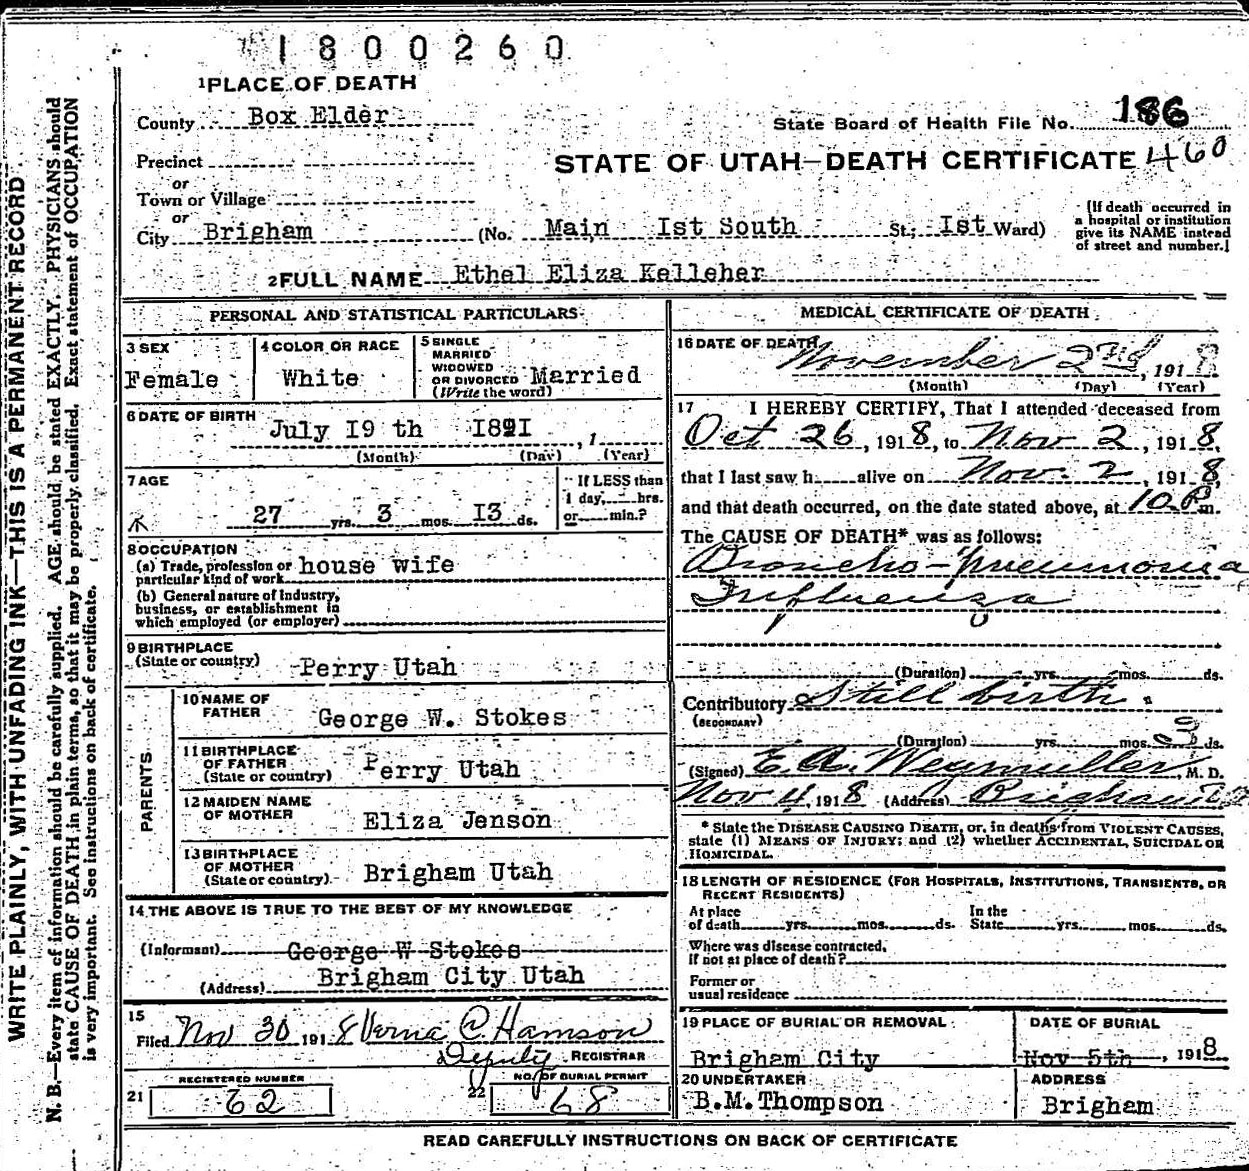 1800260
1 PLACE OF DEATH
County Box Elder
State Board of Health File No. 186
Precinct
STATE OF UTAH—DEATH CERTIFICATE 460
or
Town or Village
or
City Brigham (No. Main Ist South St; Ist Ward)
(If death occurred in
a hospital or institution
give its NAME instead
of street and number.)
2 FULL NAME Ethel Eliza Kelleher
PERSONAL AND STATISTICAL PARTICULARS
3 SEX
Female
4 COLOR OR RACE
White
5 SINGLE
MARRIED
WIDOWED
OR DIVORCED Married
(Write the word)
6 DATE OF BIRTH
July I9 th I89I , 1
(Month) (Day) (Year)
7 AGE
27 yrs. 3 mos. I3 ds.
If LESS than
1 day, hrs.
or min.?
8 OCCUPATION
(a) Trade, profession or house wife
particular kind of work
(b) General nature of Industry,
business, or establishment in
which employed (or employer)
9 BIRTHPLACE
(State or country) Perry Utah
PARENTS
10 NAME OF
FATHER George W. Stokes
11 BIRTHPLACE
OF FATHER
(State or country) Perry Utah
12 MAIDEN NAME
OF MOTHER Eliza Jenson
13 BIRTHPLACE
OF MOTHER
(State or country) Brigham Utah
14 THE ABOVE IS TRUE TO THE BEST OF MY KNOWLEDGE
(Informant) George W Stokes
(Address) Brigham City Utah
15
Filed Nov 30 1918 Verna C. Hamson
Deputy REGISTRAR
REGISTERED NUMBER
21 62
NO. OF BURIAL PERMIT
22 68
MEDICAL CERTIFICATE OF DEATH
16 DATE OF DEATH November 2nd, 1918
(Month) (Day) (Year)
17 I HEREBY CERTIFY, That I attended deceased from
Oct 26, 1918, to Nov 2, 1918,
that I last saw h alive on Nov. 2, 1918,
and that death occurred, on the date stated above, at 10 P.m.
The CAUSE OF DEATH* was as follows:
Broncho-pneumonia
Influenza
(Duration) yrs. mos. ds.
Contributory Still birth
(SECONDARY)
(Duration) yrs. mos. 3 ds.
(Signed) E. A. Weymuller, M. D.
Nov 4, 1918 (Address) Brigham
* State the DISEASE CAUSING DEATH, or, in deaths from VIOLENT CAUSES,
state (1) MEANS OF INJURY; and (2) whether ACCIDENTAL, SUICIDAL OR
HOMICIDAL.
18 LENGTH OF RESIDENCE (FOR HOSPITALS, INSTITUTIONS, TRANSIENTS, OR
RECENT RESIDENTS)
At place
of death yrs. mos. ds.
In the
State yrs. mos. ds.
Where was disease contracted,
if not at place of death?
Former or
usual residence
19 PLACE OF BURIAL OR REMOVAL
Brigham City
DATE OF BURIAL
Nov 5th, 1918
20 UNDERTAKER
B.M.Thompson
ADDRESS
Brigham
READ CAREFULLY INSTRUCTIONS ON BACK OF CERTIFICATE
WRITE PLAINLY, WITH UNFADING INK—THIS IS A PERMANENT RECORD
N. B.—Every item of information should be carefully supplied. AGE should be stated EXACTLY. PHYSICIANS should
state CAUSE OF DEATH in plain terms, so that it may be properly classified. Exact statement of OCCUPATION
is very important. See instructions on back of certificate.